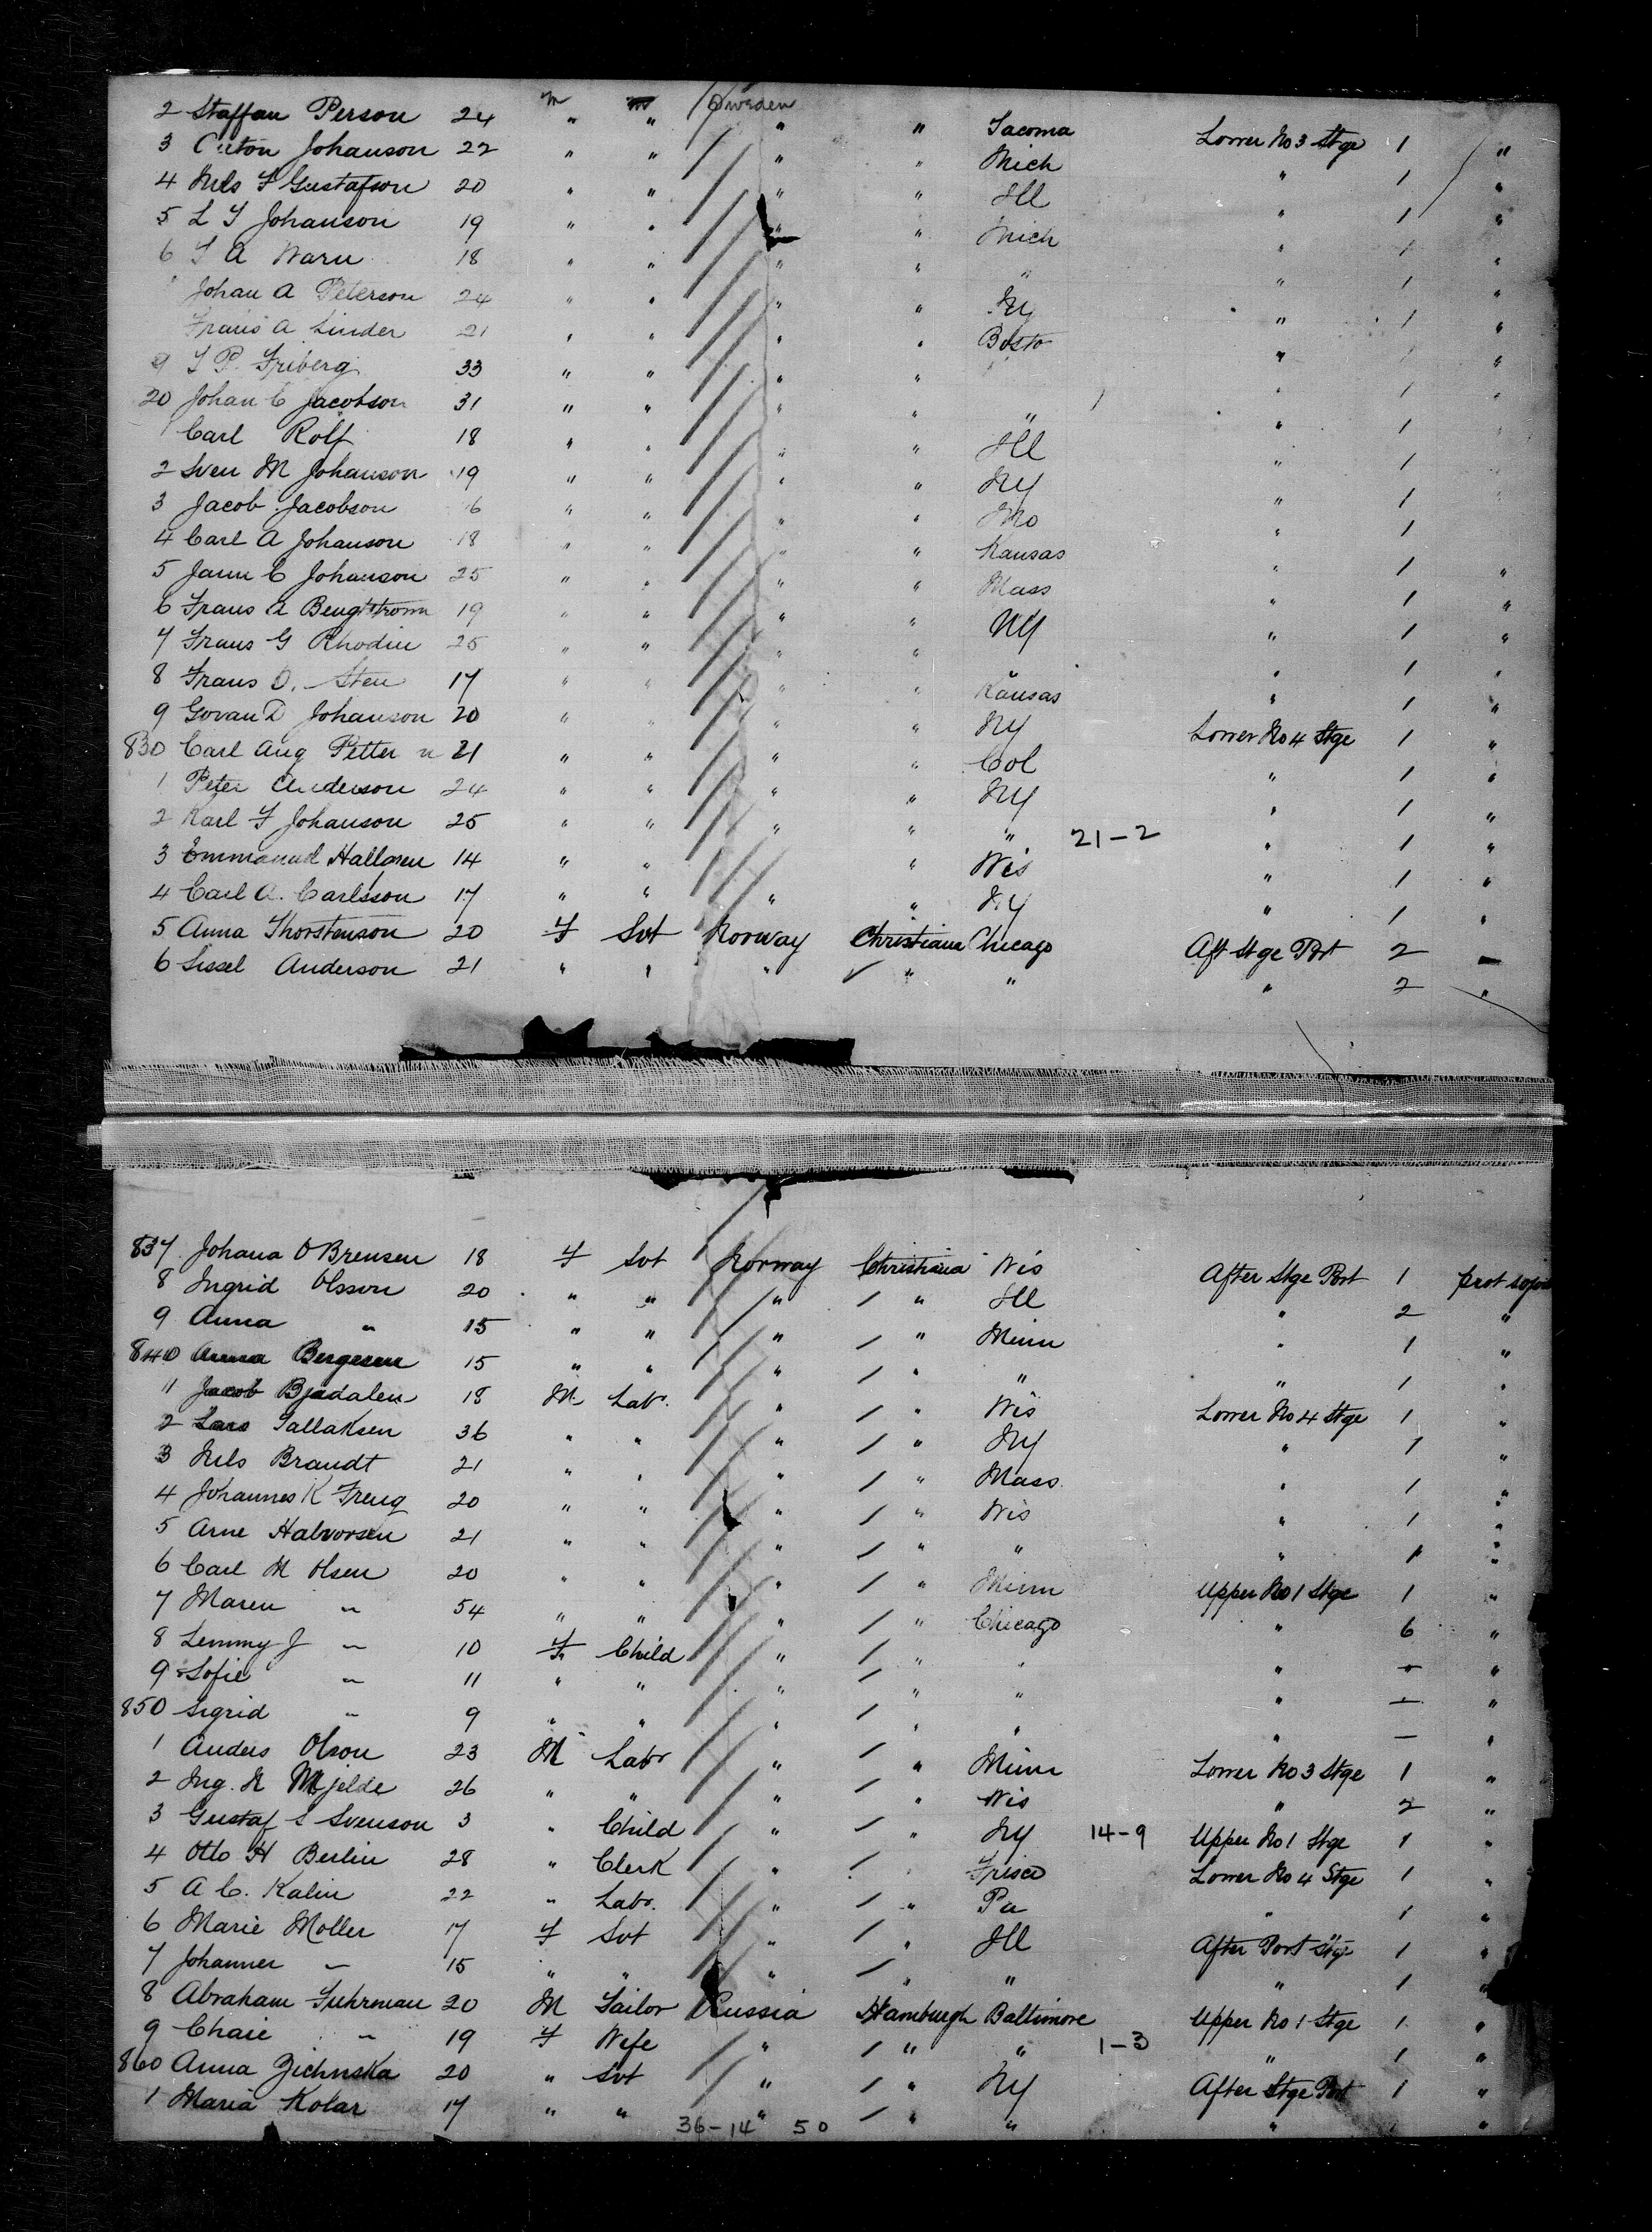 2 Staffan Person 24 m Sweden " Tacoma Lower No 3 Stge 1 "
3 Johanson 22 " " " " Mich " 1 "
4 Nils F Gustafson 20 " " " " Ill " 1 "
5 L J Johanson 19 " " " " Mich " 1 "
6 18 " " " " " " 1 "
Johan A Peterson 24 " " " " NY " 1 "
Frans A Linder 21 " " " " Bosto " 1 "
9 Friberg 33 " " " " " 1
20 Johan C Jacobson 31 " " " " " " 1
1 Carl Rolf 18 " " " " Ill " 1
2 Sven M Johanson 19 " " " " NY " 1
3 Jacob Jacobson 6 " " " " Mo " 1
4 Carl A Johanson 18 " " " " Kansas " 1 "
5 C Johanson 25 " " " " Mass " 1 "
6 Frans A Bengtstrom 19 " " " " NY " 1 "
7 Frans G Rhodin 25 " " " " " " 1 "
8 Frans O. Sten 17 " " " " Kansas " 1 "
9 Govan D Johanson 20 " " " " NY Lower No 4 Stge 1 "
830 Carl Aug Petter n 21 " " " " Col " 1 "
1 Peter Anderson 24 " " " " NY " 1 "
2 Karl F Johanson 25 " " " " " 21-2 " 1 "
3 Emmanuel Hallgren 14 " " " Wis " 1 "
4 Carl A. Carlsson 17 " " " " NY " 1 "
5 Anna Thorstenson 20 F Svt Norway Christiana Chicago Aft Stge Port 2 –
6 Sissel Anderson 21 " " " " " " 2 "
837 Johana O Brensen 18 F Svt Norway Christiana Wis After Stge Port 1 prot sojou
8 Ingrid Olsson 20 " " " " Ill " 2 "
9 Anna " 15 " " " " Minn " 1 "
840 Anna Bergesen 15 " " " " " " 1 "
11 Jacob Bjadalen 18 M Labr. " " Wis Lower No 4 Stge 1 "
2 Lars Tallaksen 36 " " " " NY " 1 "
3 Nils Brandt 21 " " " " Mass " 1 "
4 Johannes K Freng 20 " " " " Wis " 1 "
5 Arne Halvorsen 21 " " " " " " 1 "
6 Carl M Olsen 20 " " " " Minn Upper No 1 Stge 1 "
7 Maren " 54 " " " " Chicago " 6 "
8 Lemmy J " 10 F Child " " " " – "
9 Sofie " 11 " " " " " " – "
850 Sigrid " 9 " " " " " " – "
1 Anders Olson 23 M Labr " " Minn Lower No 3 Stge 1 "
2 Ing. N Mjelde 26 " " " " Wis " 2 "
3 Gustaf S Svenson 3 " Child " " NY 14-9 Upper No 1 Stge 1 "
4 Otto H Berlin 28 " Clerk " " Frisco Lower No 4 Stge 1 "
5 A C. Kalin 22 " Labr. " " Pa " 1 "
6 Marie Moller 17 F Svt " " Ill After Port Stge 1 "
7 Johanner " 15 " " " " " " 1 "
8 Abraham Fuhrman 20 M Tailor Russia Hamburgh Baltimore Upper No 1 Stge 1 "
9 Chaie " 19 F Wife " " " 1-3 " 1 "
860 Anna Zichnska 20 " Svt " " NY After Stge Port 1 "
1 Maria Kolar 17 " " " " " " 1 "
36-14 50